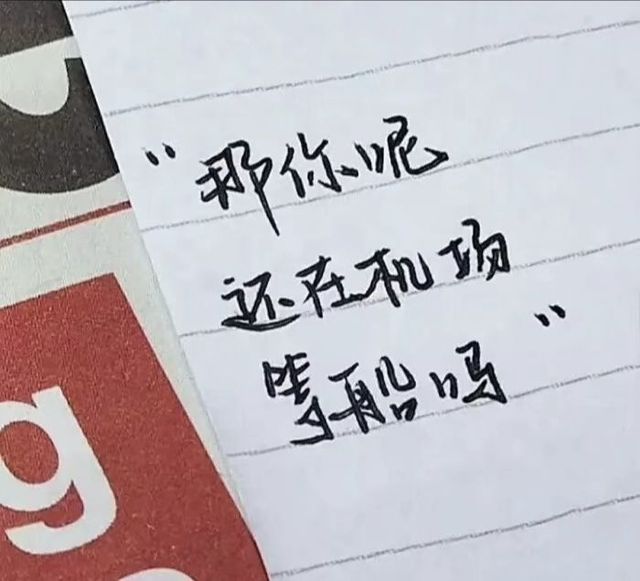 “那你呢
还在机场
等船吗”
g